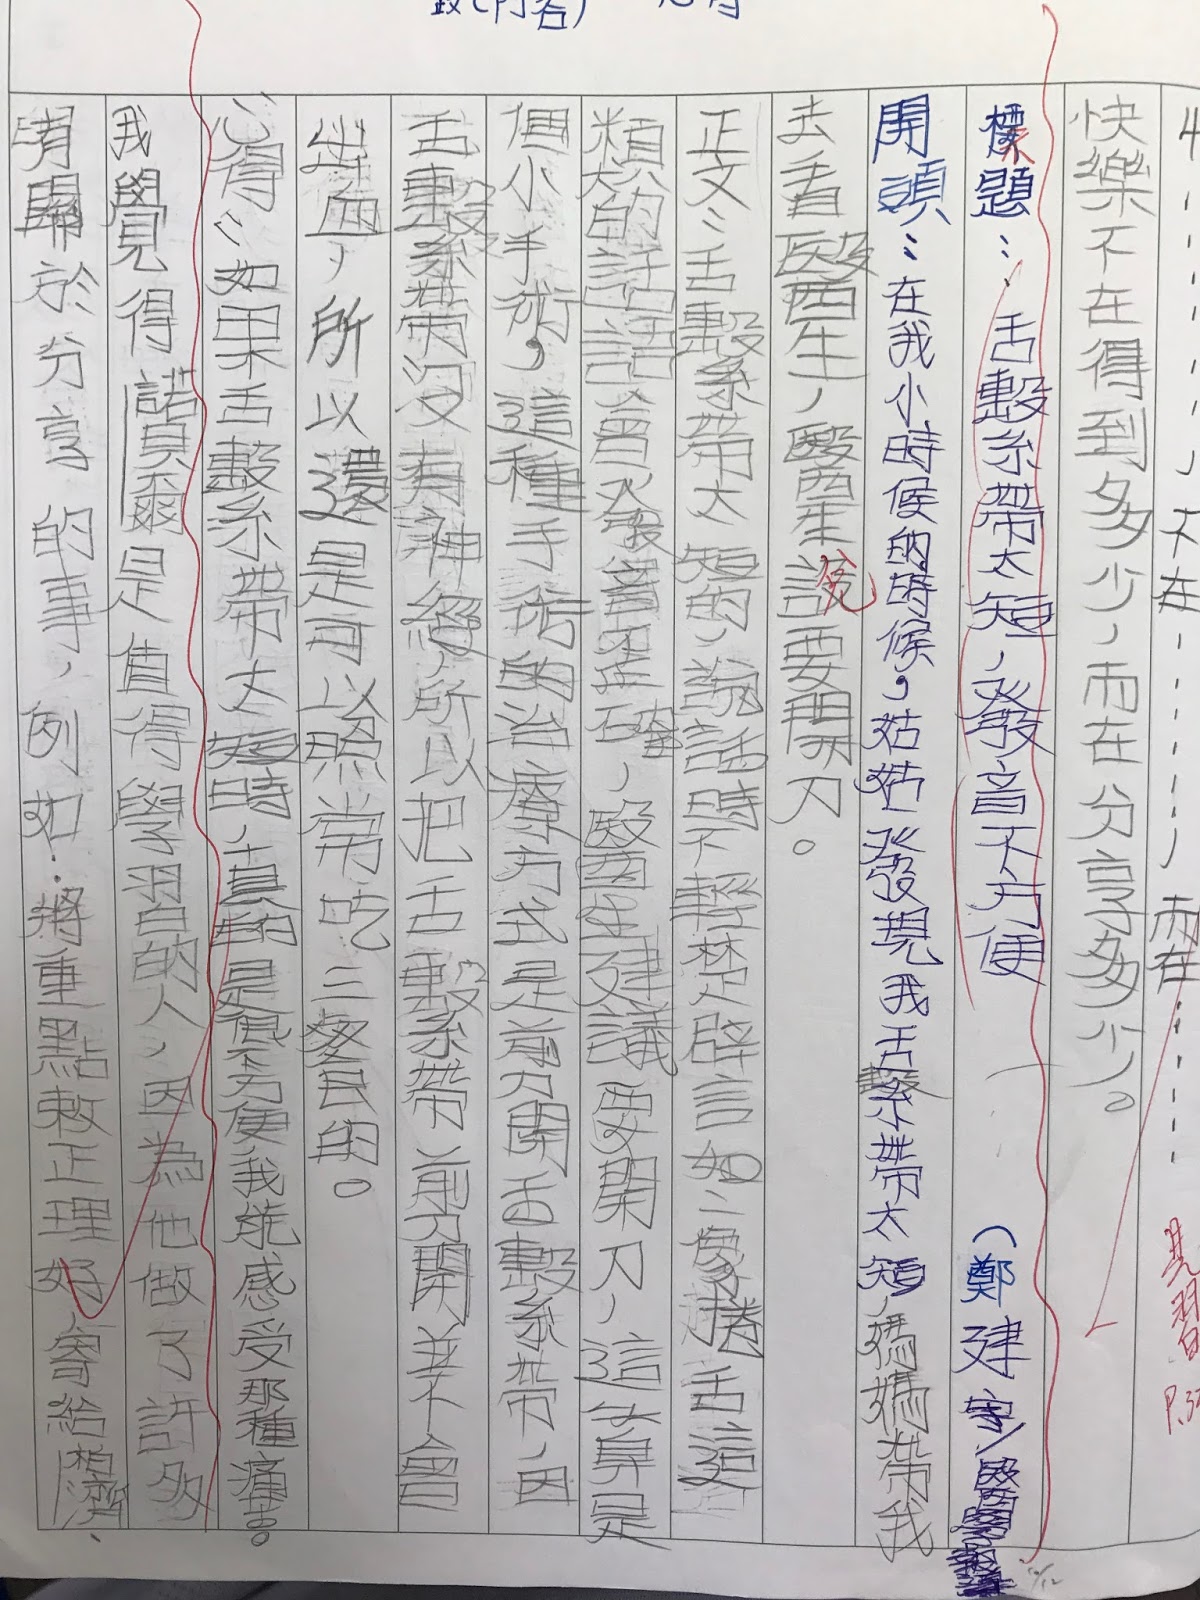 不在……,而在……
見習 P.32
快樂不在得到多少,而在分享多少。
標題:舌繫帶太短,發音不方便
(鄭建宇/醫
10/12
開頭:在我小時候的時候,姑姑發現我舌繫帶太短,媽媽帶我
去看醫生,醫生說要開刀。
正文:舌繫帶太短的,說話時不輕楚,辟言如:像捲舌這
類的話語會發音不正確,醫生建議要開刀,這算是
個小手術,這種手術的治療方式是剪刀開舌繫帶,因
舌繫帶沒有神經,所以把舌繫帶剪刀開並不會
出血,所以還是可以照常吃三餐的。
心得:如果舌繫帶太短時,真的是很不方便,我能感受那種痛苦。
我覺得諾貝爾是值得學習的人,因為他做了許多
有關於分享的事,例如:將重點敕正理好,寄給柏濟、